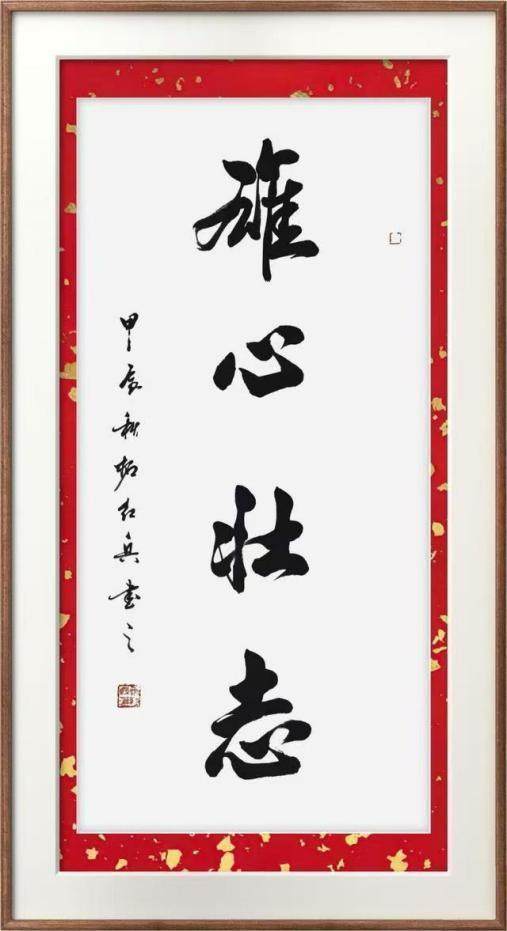 雄心壮志
甲辰秋柘红兵书之